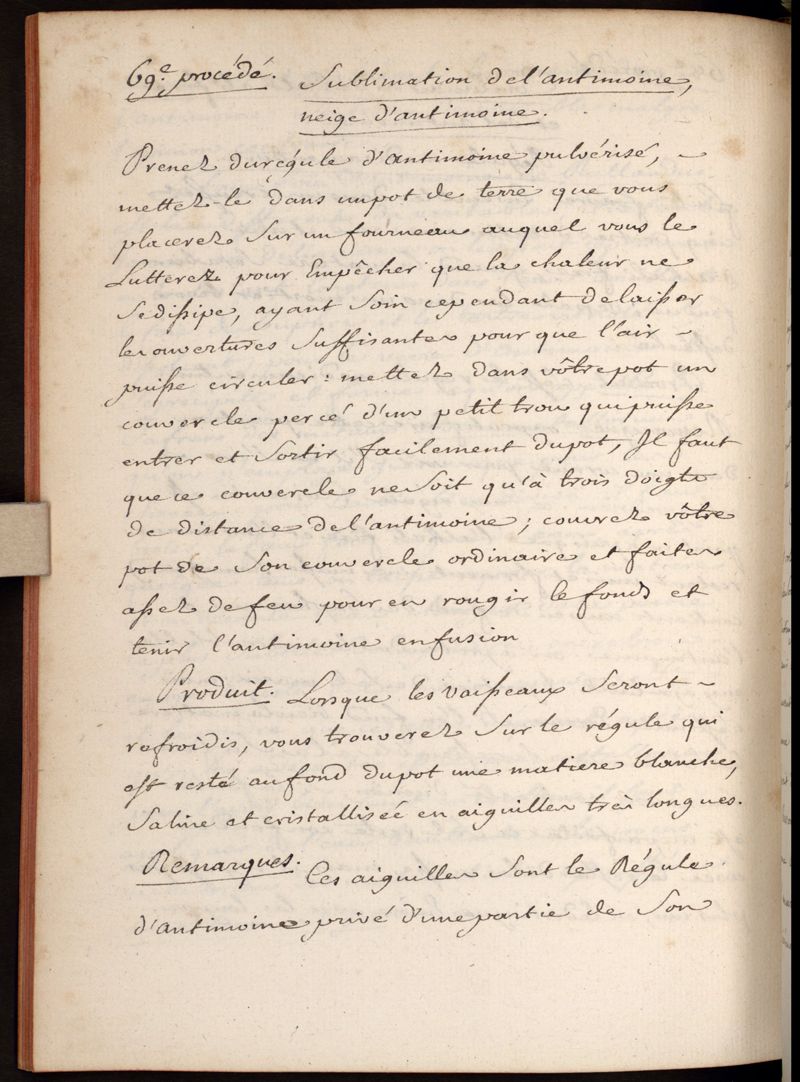 69.e procédé. Sublimation de l'antimoine,
neige d'antimoine.
Prenez du régule d'antimoine pulvérisé, -
mettez-le dans un pot de terre que vous
placerez sur un fourneau auquel vous le
Lutterez pour Empêcher que la chaleur ne
se dissipe, ayant soin cependant de laisser
les ouvertures suffisantes pour que l'air -
puisse circuler : mettez dans vôtre pot un
couvercle percé d'un petit trou qui puisse
entrer et sortir facilement du pot, Il faut
que ce couvercle ne soit qu'à trois doigts
de distance de l'antimoine ; couvrez vôtre
pot de son couvercle ordinaire et faites
assez de feu pour en rougir le fond et
tenir l'antimoine en fusion
Produit. Lorsque les vaisseaux seront -
refroidis, vous trouverez sur le régule qui
est resté au fond du pot une matiere blanche,
saline et cristallisée en aiguilles très longues.
Remarques. Ces aiguilles sont le Régule
d'antimoine privé d'une partie de son